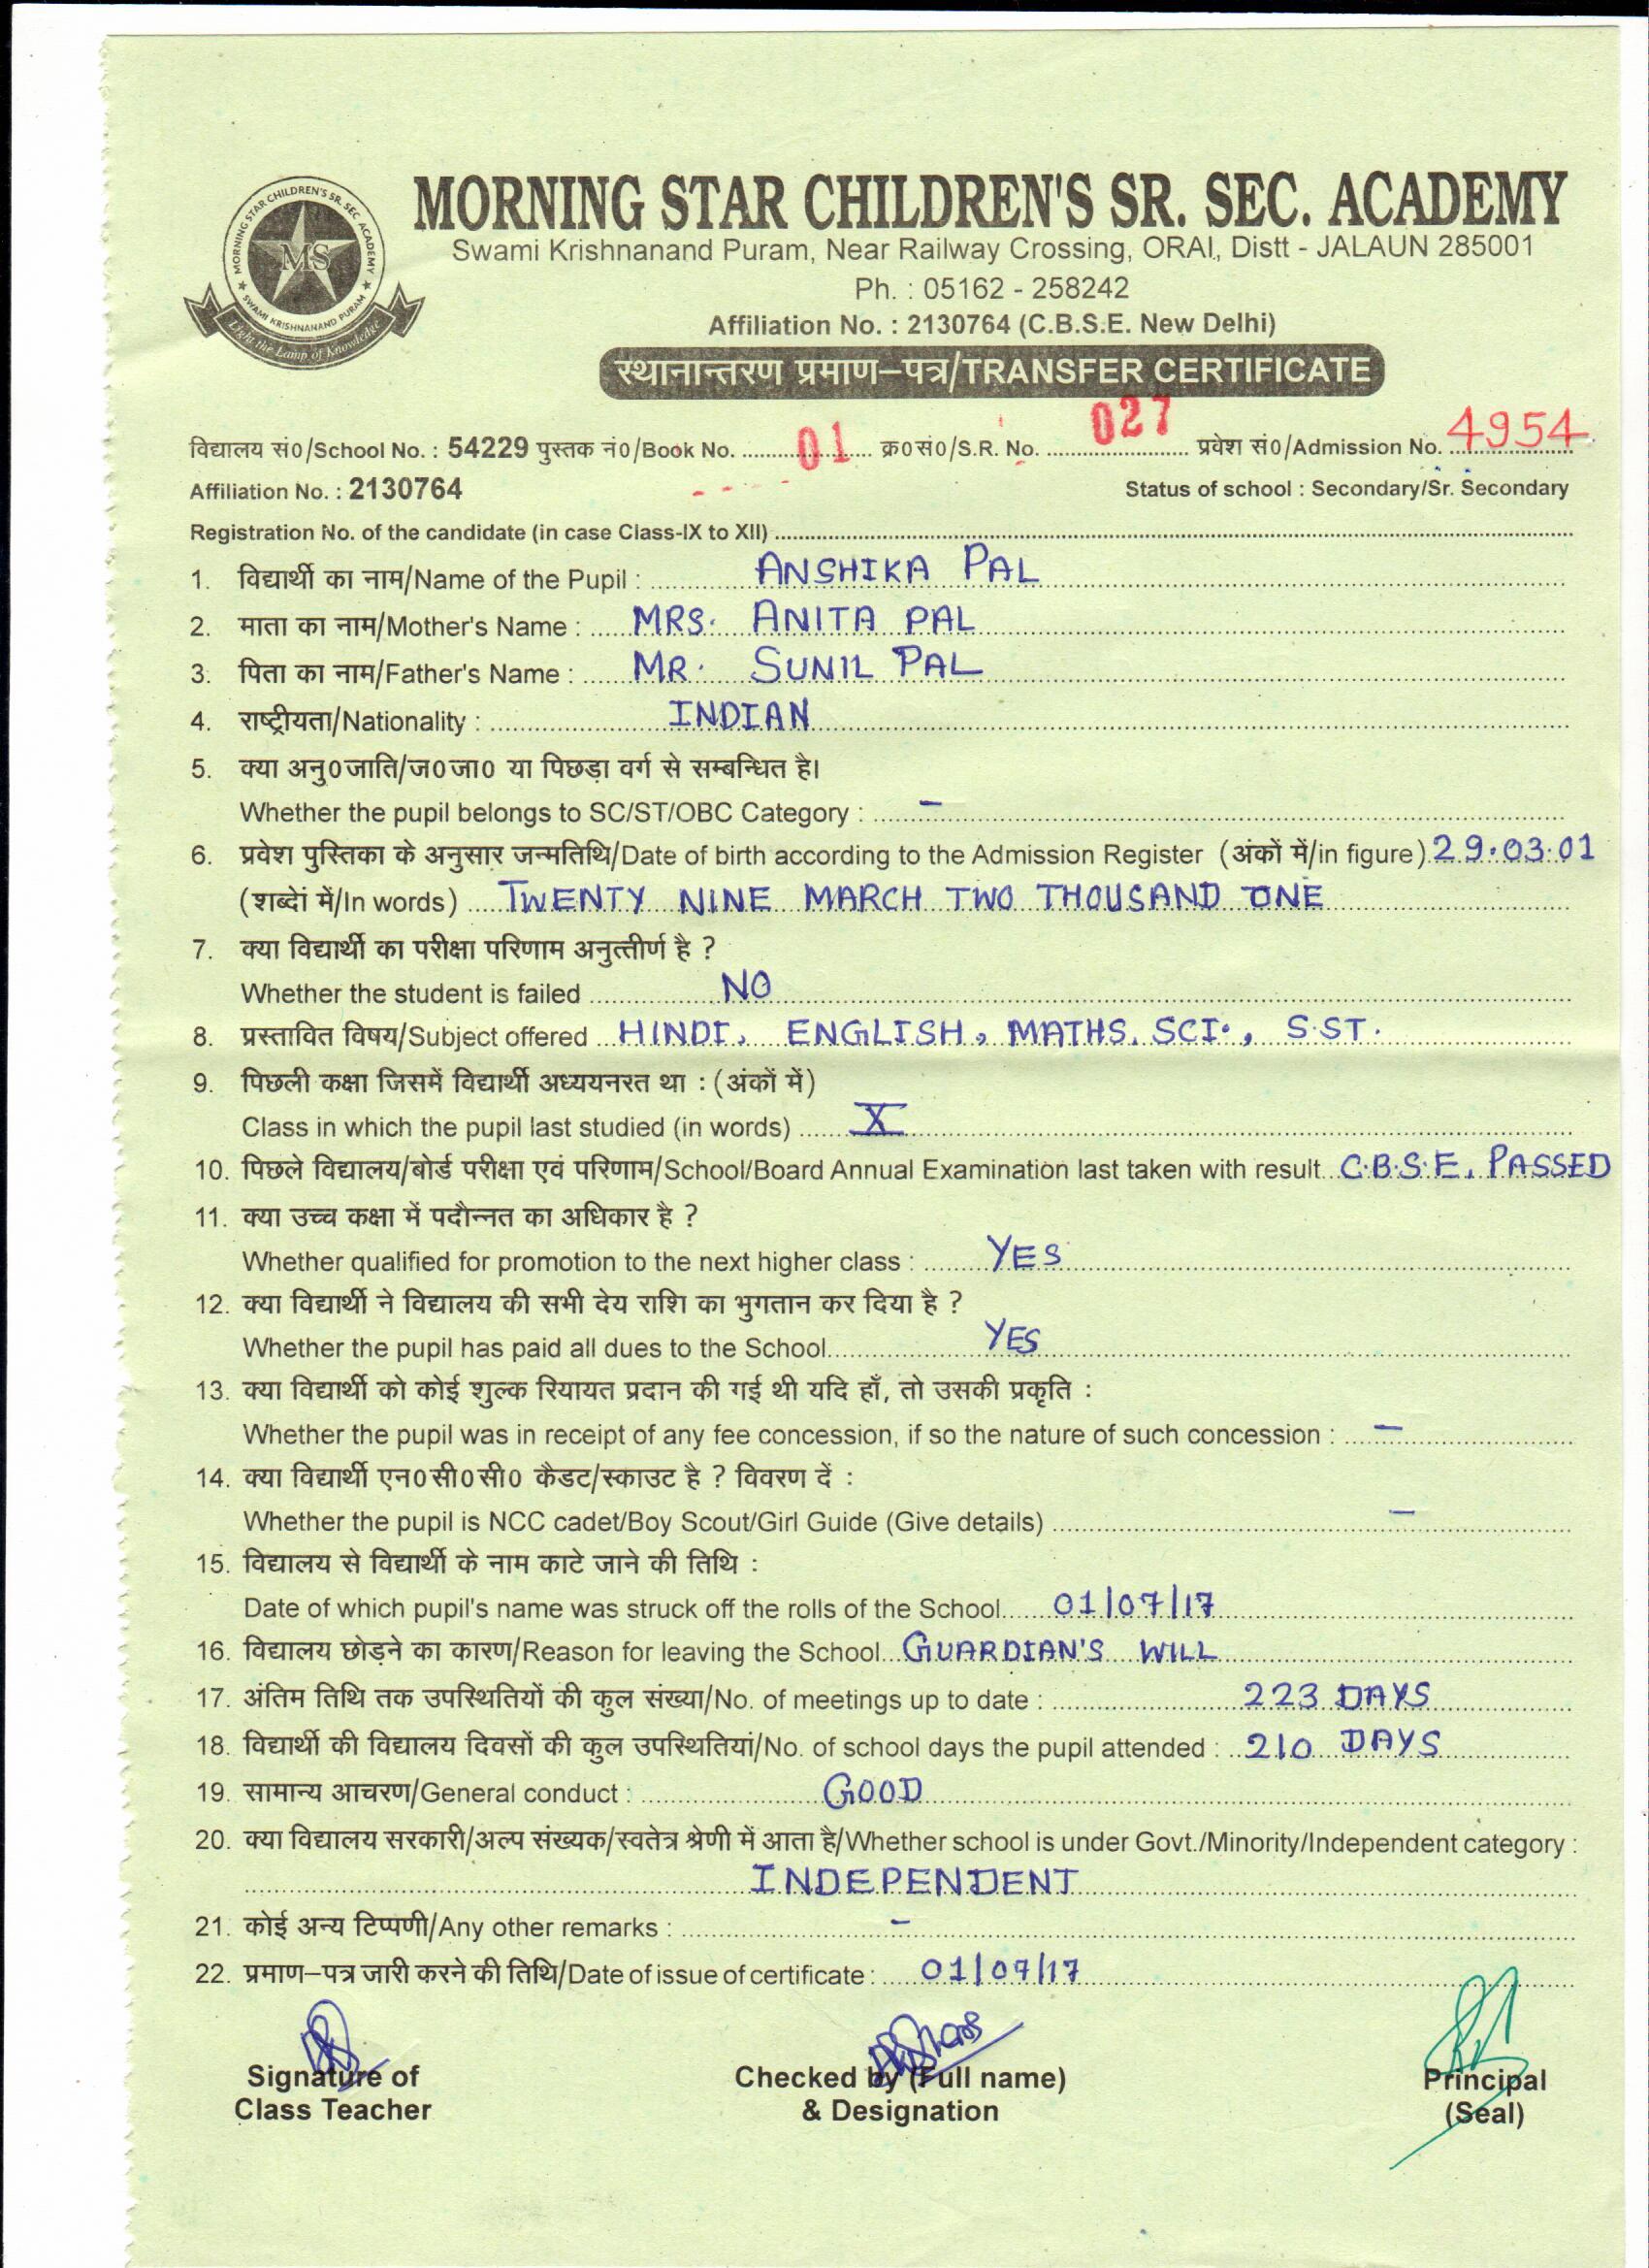 MORNING STAR CHILDREN'S SR. SEC. ACADEMY
MORNING STAR CHILDREN'S SR. SEC ACADEMY
MS
SWAMI KRISHNANAND PURAM
Light the Lamp of Knowledge
Swami Krishnanand Puram, Near Railway Crossing, ORAI, Distt - JALAUN 285001
Ph. : 05162 - 258242
Affiliation No. : 2130764 (C.B.S.E. New Delhi)
स्थानान्तरण प्रमाण–पत्र/TRANSFER CERTIFICATE
विद्यालय सं0/School No. : 54229 पुस्तक नं0/Book No. 01 क्र0सं0/S.R. No. 027 प्रवेश सं0/Admission No. 4954
Affiliation No. : 2130764 Status of school : Secondary/Sr. Secondary
Registration No. of the candidate (in case Class-IX to XII)
1. विद्यार्थी का नाम/Name of the Pupil : ANSHIKA PAL
2. माता का नाम/Mother's Name : MRS. ANITA PAL
3. पिता का नाम/Father's Name : MR. SUNIL PAL
4. राष्ट्रीयता/Nationality : INDIAN
5. क्या अनु0जाति/ज0जा0 या पिछड़ा वर्ग से सम्बन्धित है।
Whether the pupil belongs to SC/ST/OBC Category : –
6. प्रवेश पुस्तिका के अनुसार जन्मतिथि/Date of birth according to the Admission Register (अंकों में/in figure) 29.03.01
(शब्देां में/In words) TWENTY NINE MARCH TWO THOUSAND ONE
7. क्या विद्यार्थी का परीक्षा परिणाम अनुत्तीर्ण है ?
Whether the student is failed NO
8. प्रस्तावित विषय/Subject offered HINDI, ENGLISH, MATHS, SCI., S.ST.
9. पिछली कक्षा जिसमें विद्यार्थी अध्ययनरत था : (अंकों में)
Class in which the pupil last studied (in words) X
10. पिछले विद्यालय/बोर्ड परीक्षा एवं परिणाम/School/Board Annual Examination last taken with result C.B.S.E. PASSED
11. क्या उच्च कक्षा में पदौन्नत का अधिकार है ?
Whether qualified for promotion to the next higher class : YES
12. क्या विद्यार्थी ने विद्यालय की सभी देय राशि का भुगतान कर दिया है ?
Whether the pupil has paid all dues to the School YES
13. क्या विद्यार्थी को कोई शुल्क रियायत प्रदान की गई थी यदि हाँ, तो उसकी प्रकृति :
Whether the pupil was in receipt of any fee concession, if so the nature of such concession : –
14. क्या विद्यार्थी एन0सी0सी0 कैडट/स्काउट है ? विवरण दें :
Whether the pupil is NCC cadet/Boy Scout/Girl Guide (Give details) –
15. विद्यालय से विद्यार्थी के नाम काटे जाने की तिथि :
Date of which pupil's name was struck off the rolls of the School 01/07/17
16. विद्यालय छोड़ने का कारण/Reason for leaving the School GUARDIAN'S WILL
17. अंतिम तिथि तक उपस्थितियों की कुल संख्या/No. of meetings up to date : 223 DAYS
18. विद्यार्थी की विद्यालय दिवसों की कुल उपस्थितियां/No. of school days the pupil attended : 210 DAYS
19. सामान्य आचरण/General conduct : GOOD
20. क्या विद्यालय सरकारी/अल्प संख्यक/स्वतेत्र श्रेणी में आता है/Whether school is under Govt./Minority/Independent category :
INDEPENDENT
21. कोई अन्य टिप्पणी/Any other remarks : –
22. प्रमाण–पत्र जारी करने की तिथि/Date of issue of certificate : 01/07/17
Signature of Checked by (Full name) Principal
Class Teacher & Designation (Seal)